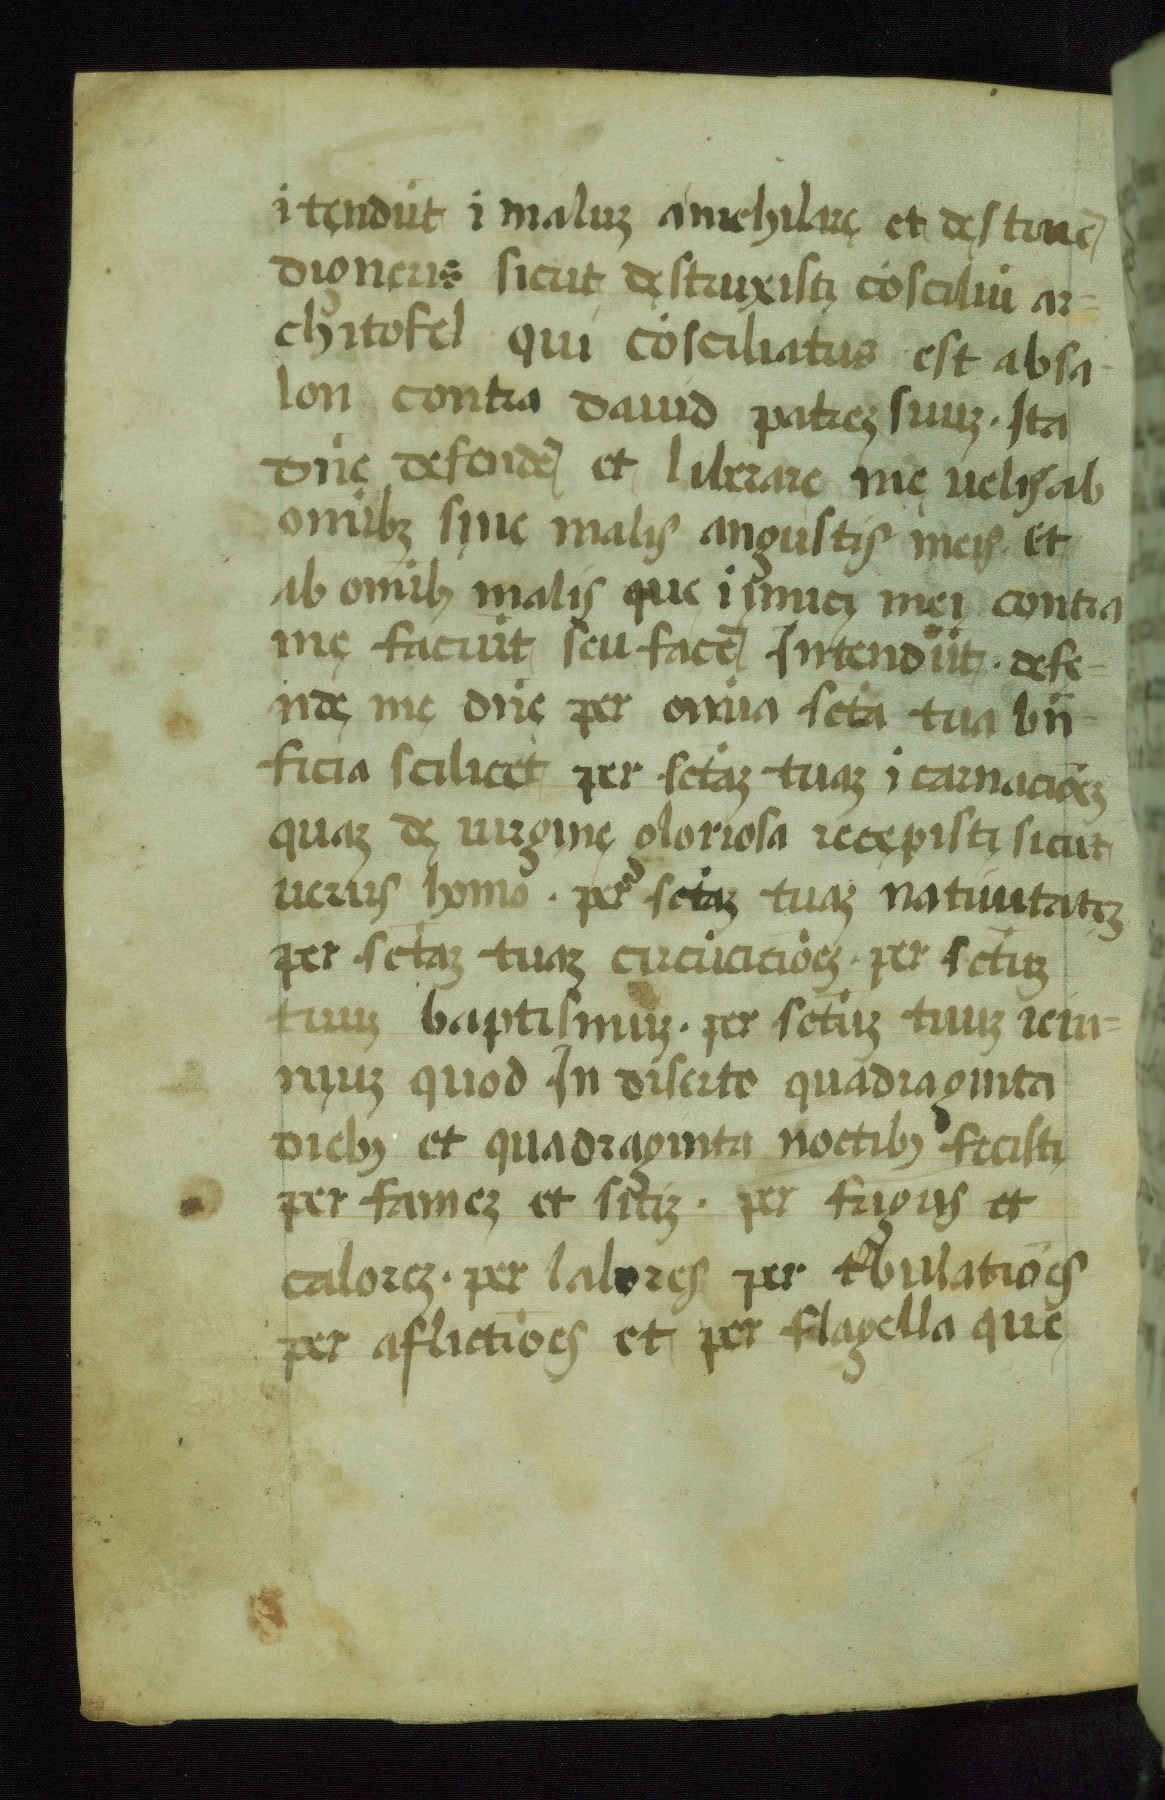 i tendūt i maluꝫ anichilare et destruē
digneris sicut destruxisti cōsciliū ar=
chitofel qui cōsciliatus est absa-
lon contra dauid patreꝫ suuꝫ. Ita
dn̄e defendē et liberare me uelis ab
om̄ibꝫ siue malis angustis meis et
ab om̄ibꝫ malis que i imici mei contra
me faciūt seu facē Intendūt. defe-
nde me dn̄e per om̄ia sc̄ta tua bn̄-
ficia scilicet per sc̄taꝫ tuaꝫ i carnaciōeꝫ
quaꝫ de uirgine gloriosa recepisti sicut
uerus homo. per sc̄taꝫ tuaꝫ natiuitateꝫ
per sc̄taꝫ tuaꝫ circūciciōeꝫ. per sc̄tuꝫ
tuuꝫ baptismuꝫ. per sc̄tuꝫ tuuꝫ ieiu=
niuꝫ quod In diserto quadraginta
diebꝫ et quadraginta noctibꝫ fecisti
per fameꝫ et sitiꝫ. per frigus et
caloreꝫ. per labores per tribulatiōes
per aflictiōes et per flagella que